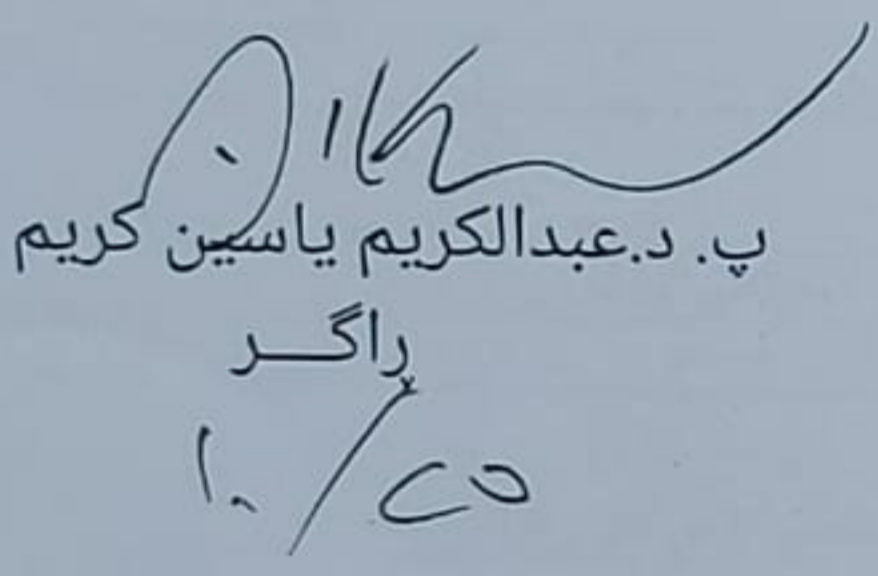 پ. د.عبدالكريم ياسين كريم
ڕاگـــر
١٠/٢٥